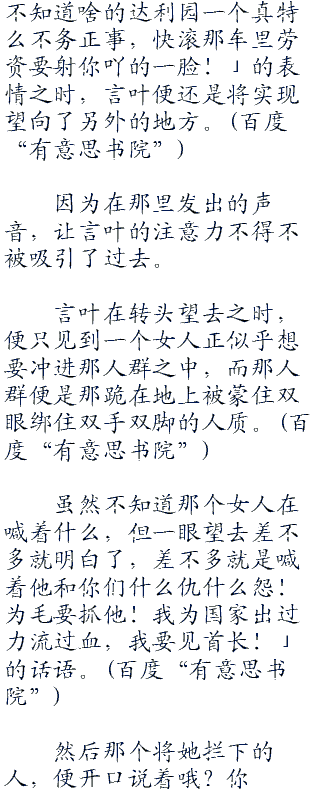 不知道啥的达利园一个真特
么不务正事，快滚那年里劳
资要射你吖的一脸！」的表
情之时，言叶便还是将实现
望向了另外的地方。(百度
“有意思书院”)
因为在那里发出的声
音，让言叶的注意力不得不
被吸引了过去。
言叶在转头望去之时，
便只见到一个女人正似乎想
要冲进那人群之中，而那人
群便是那跪在地上被蒙住双
眼绑住双手双脚的人质。(百
度“有意思书院”)
虽然不知道那个女人在
喊着什么，但一眼望去差不
多就明白了，差不多就是喊
着他和你们什么仇什么怨！
为毛要抓他！我为国家出过
力流过血，我要见首长！」
的话语。(百度“有意思书
院”)
然后那个将她拦下的
人，便开口说着哦？你